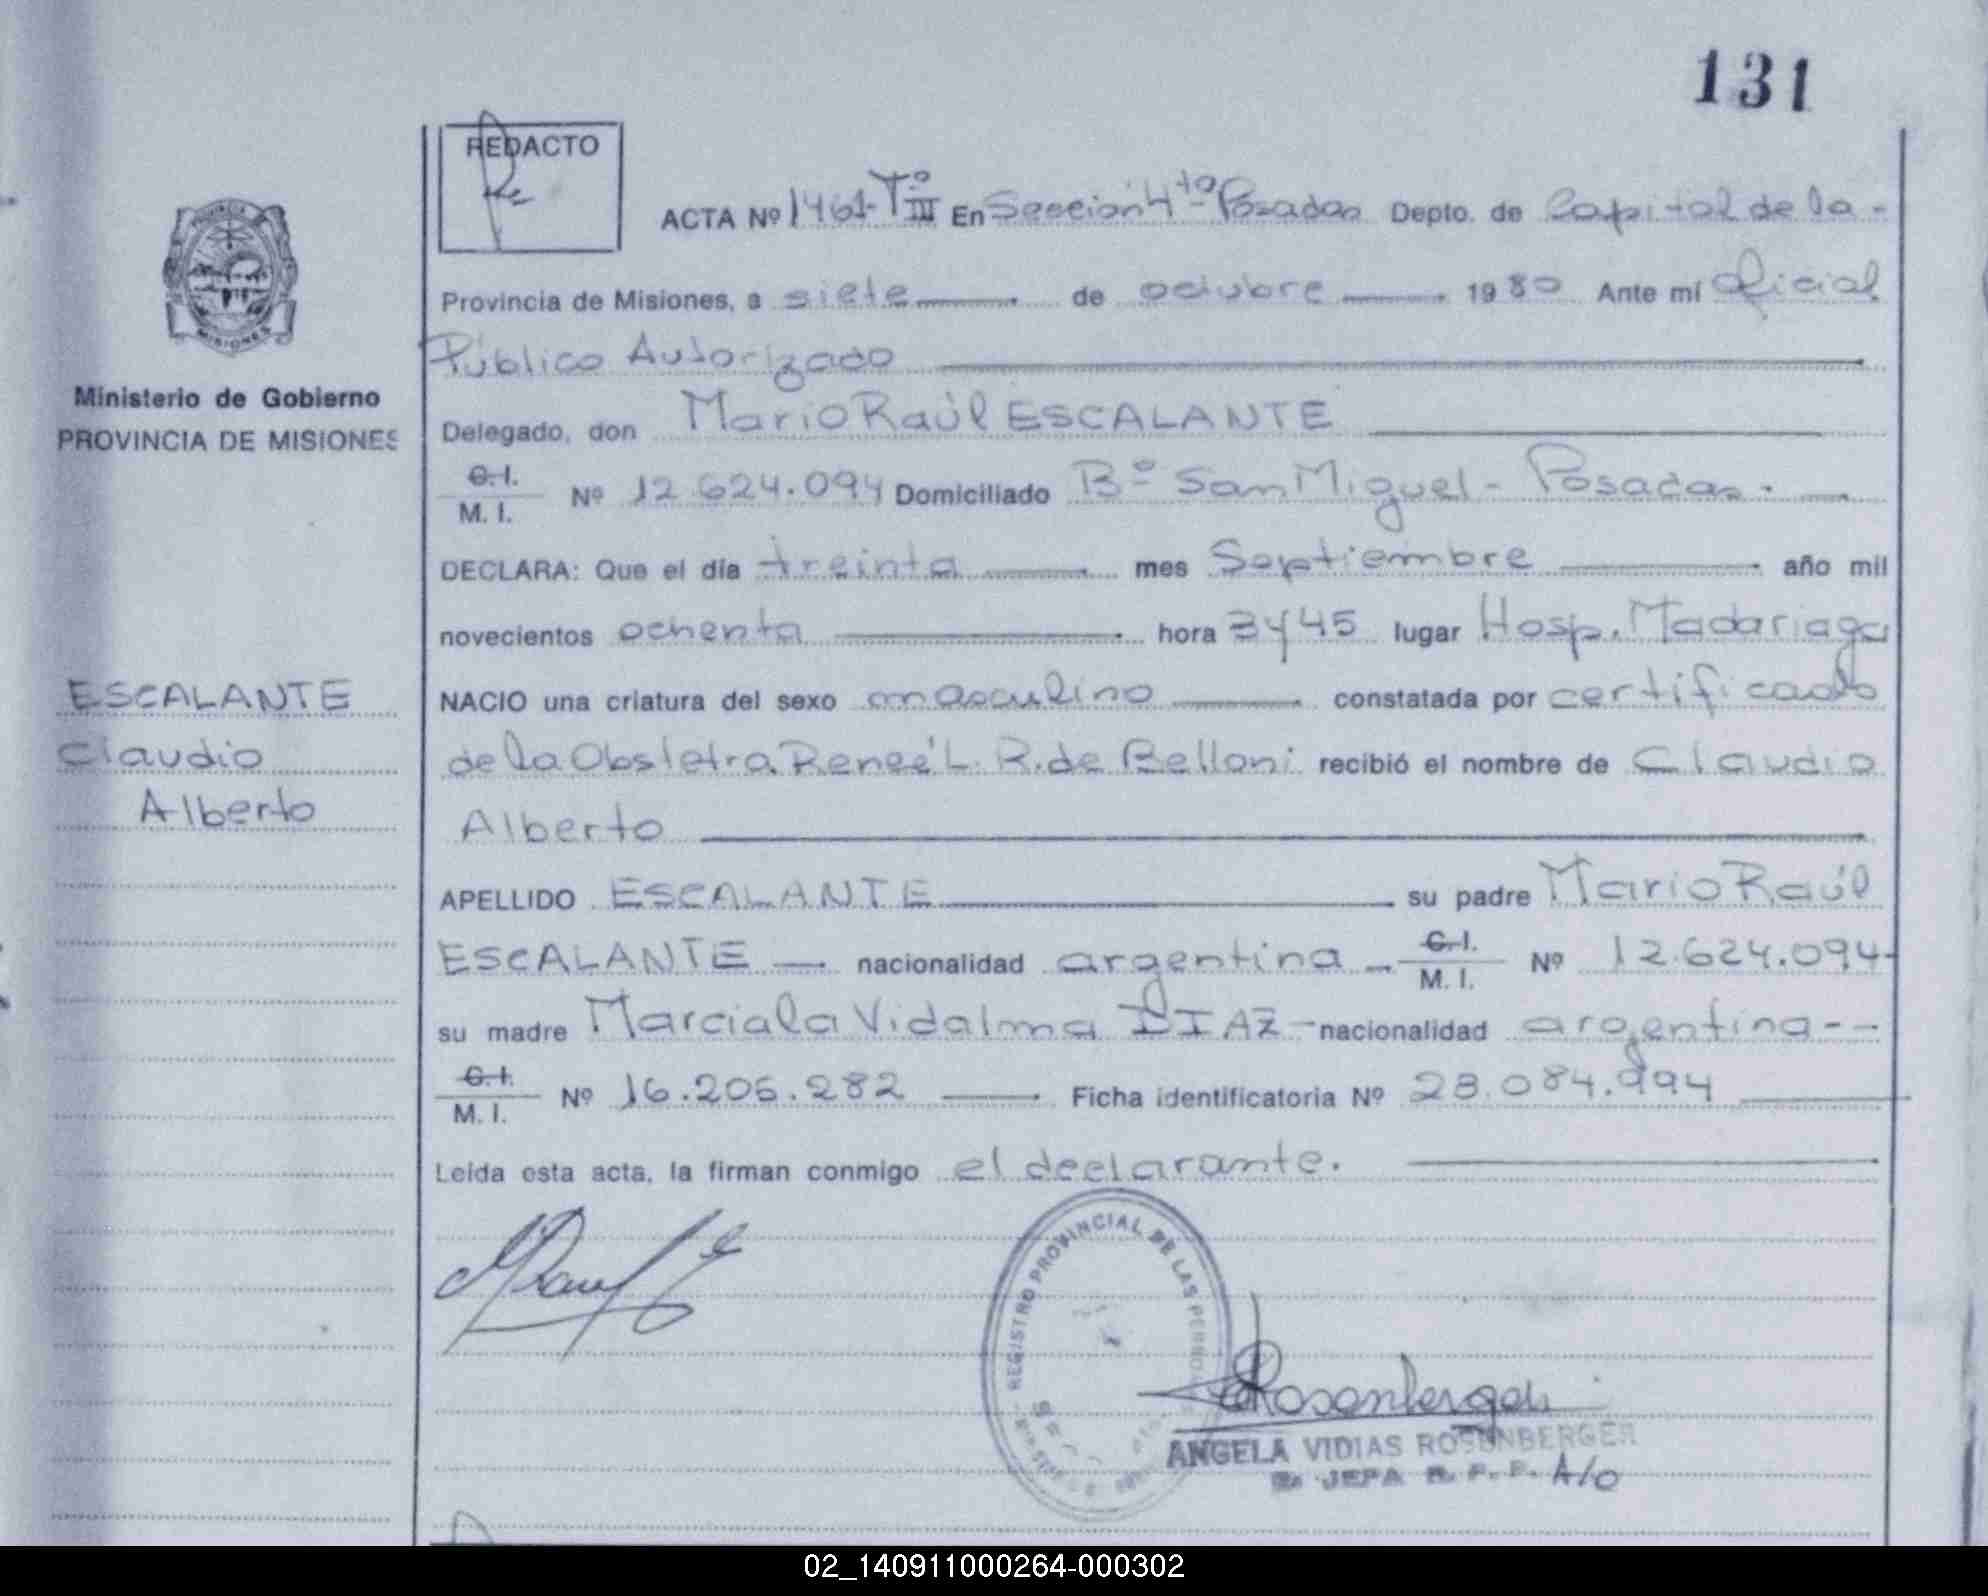 131
REDACTO
ACTA Nº 1461-Tº III En Sección 4ta Posadas Depto. de Capital de la-
Provincia de Misiones, a siete de octubre 1980 Ante mí Oficial
Público Autorizado
Ministerio de Gobierno
PROVINCIA DE MISIONES
Delegado, don Mario Raúl ESCALANTE
C.I.
M. I. Nº 12.624.094 Domiciliado Bº San Miguel - Posadas.
DECLARA: Que el día treinta mes Septiembre año mil
novecientos ochenta hora 3y45 lugar Hosp. Madariaga
ESCALANTE
Claudio
Alberto
NACIO una criatura del sexo masculino constatada por certificado
de la Obstetra Reneé L. R. de Belloni recibió el nombre de Claudio
Alberto
APELLIDO ESCALANTE su padre Mario Raúl
ESCALANTE nacionalidad argentina C.I.
M. I. Nº 12.624.094-
su madre Marciala Vidalma DIAZ - nacionalidad argentina--
C.I.
M. I. Nº 16.205.282 Ficha identificatoria Nº 28.084.994
Leída esta acta, la firman conmigo el declarante.
REGISTRO PROVINCIAL DE LAS PERSONAS
Rosenberger
ANGELA VIDIAS ROSENBERGER
JEFA R. P. P. A/O
02_140911000264-000302